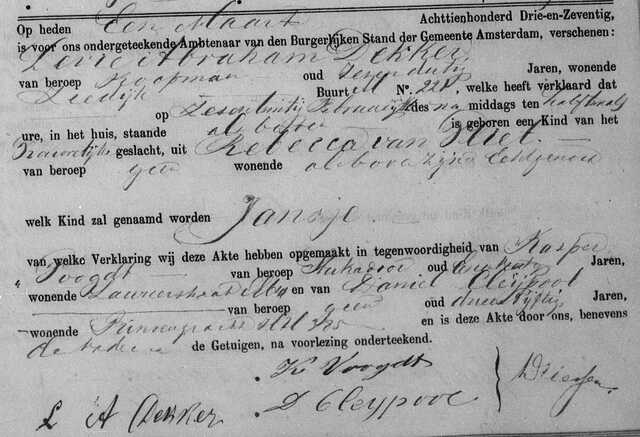 Op heden Een Maart Achttienhonderd Drie-en-Zeventig,
is voor ons ondergeteekende Ambtenaar van den Burgerlijken Stand der Gemeente Amsterdam, verschenen:
Levie Abraham Dekker
van beroep Koopman oud Jaren, wonende
Zeedijk Buurt N°. welke heeft verklaard dat
op Februarij des na middags ten half twaalf
ure, in het huis, staande als boven is geboren een Kind van het
Vrouwelijk geslacht, uit Rebecca van
van beroep geen wonende als boven zijne Echtgenoot
welk Kind zal genaamd worden Jansje
van welke Verklaring wij deze Akte hebben opgemaakt in tegenwoordigheid van Kasper
Voogdt van beroep oud Jaren,
wonende Laurierstraat en van Daniel Cleypool
van beroep geen oud Jaren,
wonende Prinsengracht en is deze Akte door ons, benevens
de vader de Getuigen, na voorlezing onderteekend.
K Voogdt
L A Dekker D Cleypool